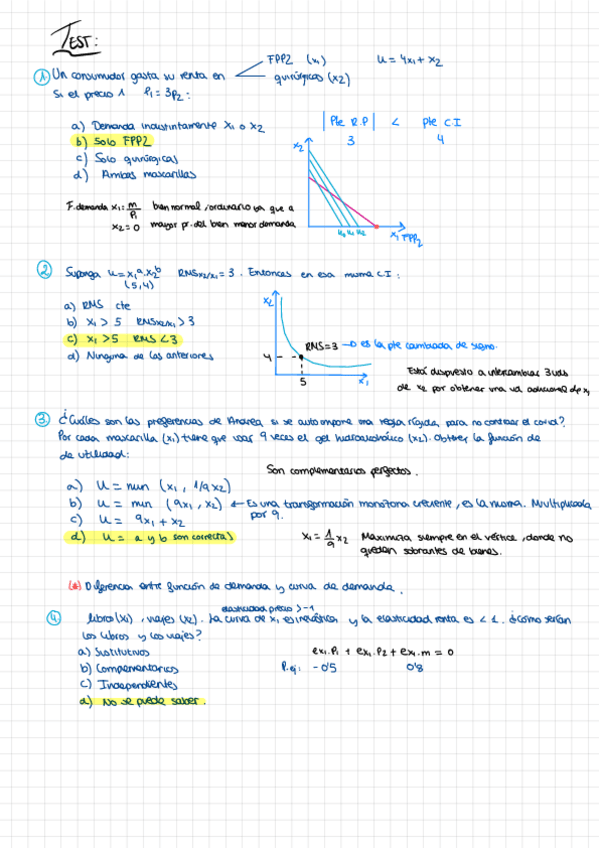 TEST:
FPP2 (x₁) U = 4x₁ + x₂
① Un consumidor gasta su renta en
quirúrgicas (x2)
Si el precio 1 P₁ = 3P₂ :
a) Demanda indistintamente x₁ o x₂
b) Solo FPP2
c) Solo quirúrgicas
d) Ambas mascarillas
|Pte R.P| < Pte C.I
3 4
x₂
x₁ FPP₂
F. demanda x₁ = m/P₁ bien normal, ordinario ya que a
x₂ = 0 mayor pr. del bien menor demanda
② Suponga U = x₁ᵃ · x₂ᵇ RMS x₂/x₁ = 3. Entonces en esa misma C.I :
(5,4)
a) RMS cte
b) x₁ > 5 RMSx2/x₁ > 3
c) x₁ > 5 RMS < 3
d) Ninguna de las anteriores
x₂
RMS = 3 → es la pte cambiada de signo.
4
5
x₁
Está dispuesto a intercambiar 3 uds
de x₂ por obtener una ud adicional de x₁
③ ¿Cuáles son las preferencias de Andrea si se autoimpone una regla rígida, para no contraer el covid?
Por cada mascarilla (x₁) tiene que usar 9 veces el gel hidroalcohólico (x₂). Obtener la función de
de utilidad:
Son complementarios perfectos.
a) U = min (x₁, 1/9 x₂)
b) U = min (9x₁, x₂) ← Es una transformación monótona creciente, es la misma. Multiplicada
por 9.
c) U = 9x₁ + x₂
d) U = a y b son correctas
x₁ = 1/9 x₂ Maximiza siempre en el vértice, donde no
quedan sobrantes de bienes.
(*) Diferencia entre función de demanda y curva de demanda.
elasticidad precio > -1
④ libros (x₁), viajes (x₂). La curva de x₁ es inelástica y la elasticidad renta es < 1. ¿Cómo serían
los libros y los viajes?
a) Sustitutivos
b) Complementarios
c) Independientes
d) No se puede saber.
ex₁.P₁ + ex₁.P₂ + ex₁.m = 0
P.ej: -0'5 0'8